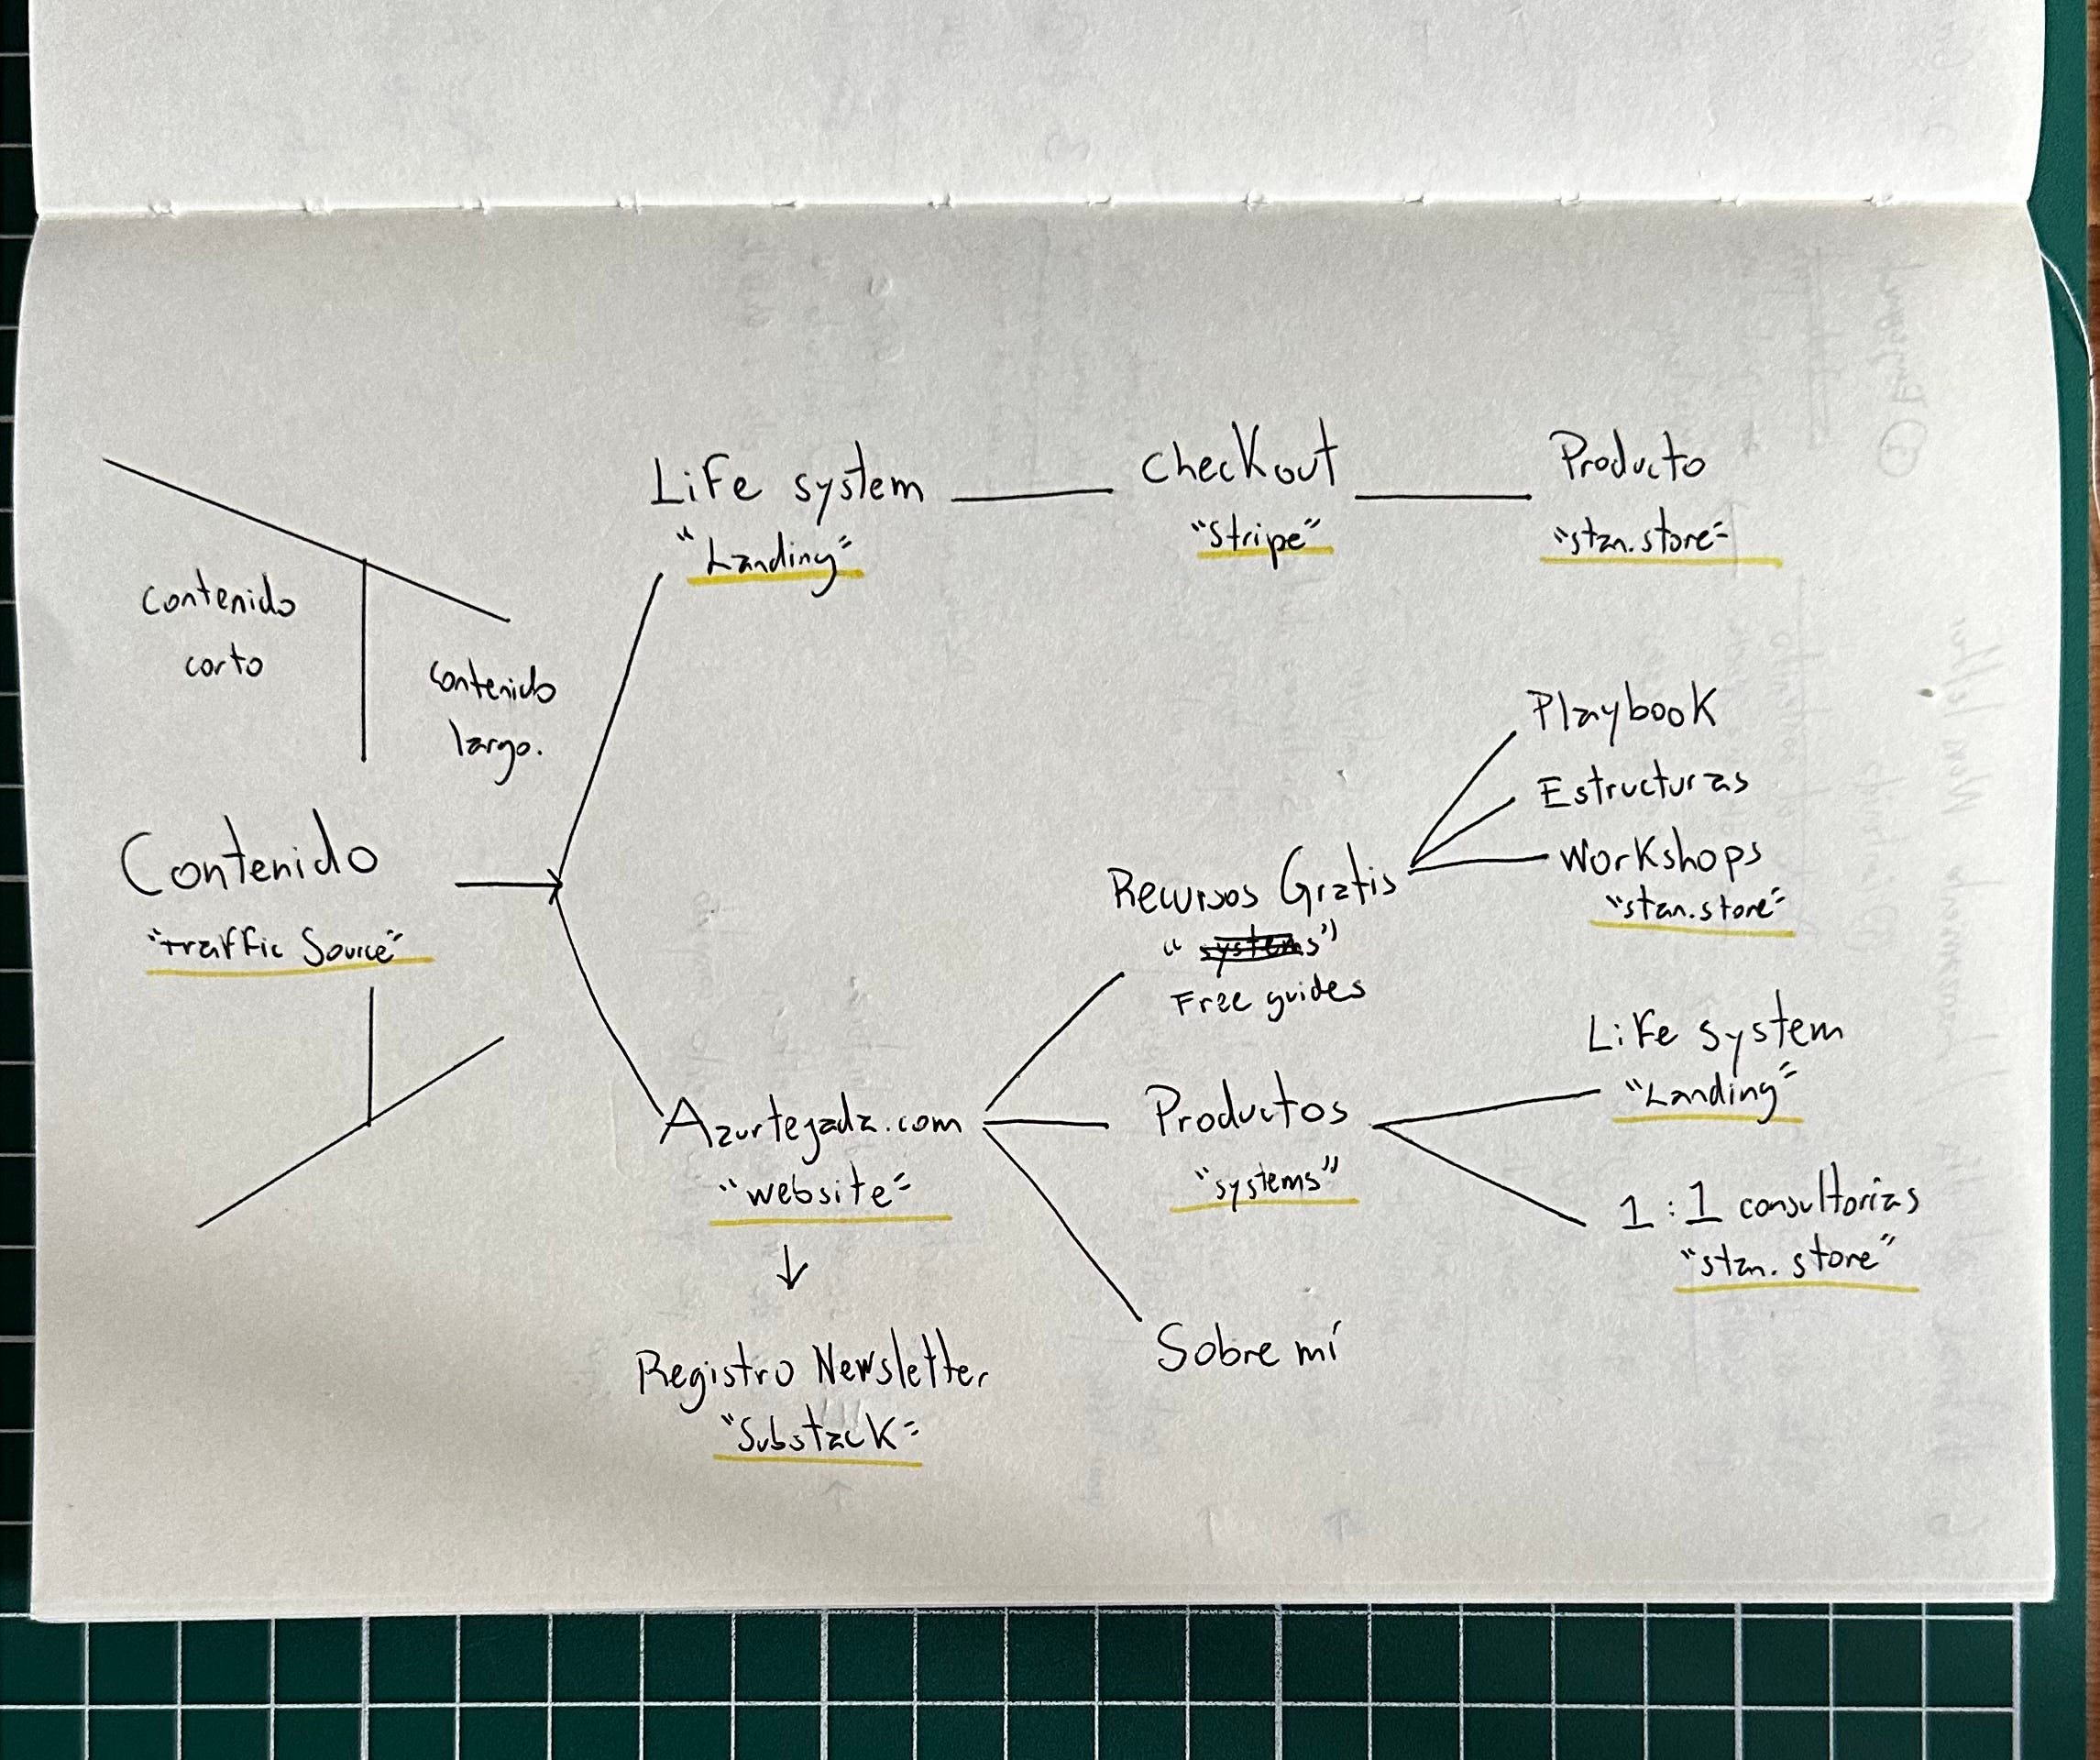 Contenido
corto
contenido
largo.
Contenido
"traffic Source"
Life system
"Landing"
checkout
"Stripe"
Producto
"stan.store"
Azurtejada.com
"website"
↓
Registro Newsletter
"Substack"
Recursos Gratis
"systems"
Free guides
Playbook
Estructuras
Workshops
"stan.store"
Productos
"systems"
Life system
"Landing"
1:1 consultorias
"stan. store"
Sobre mí